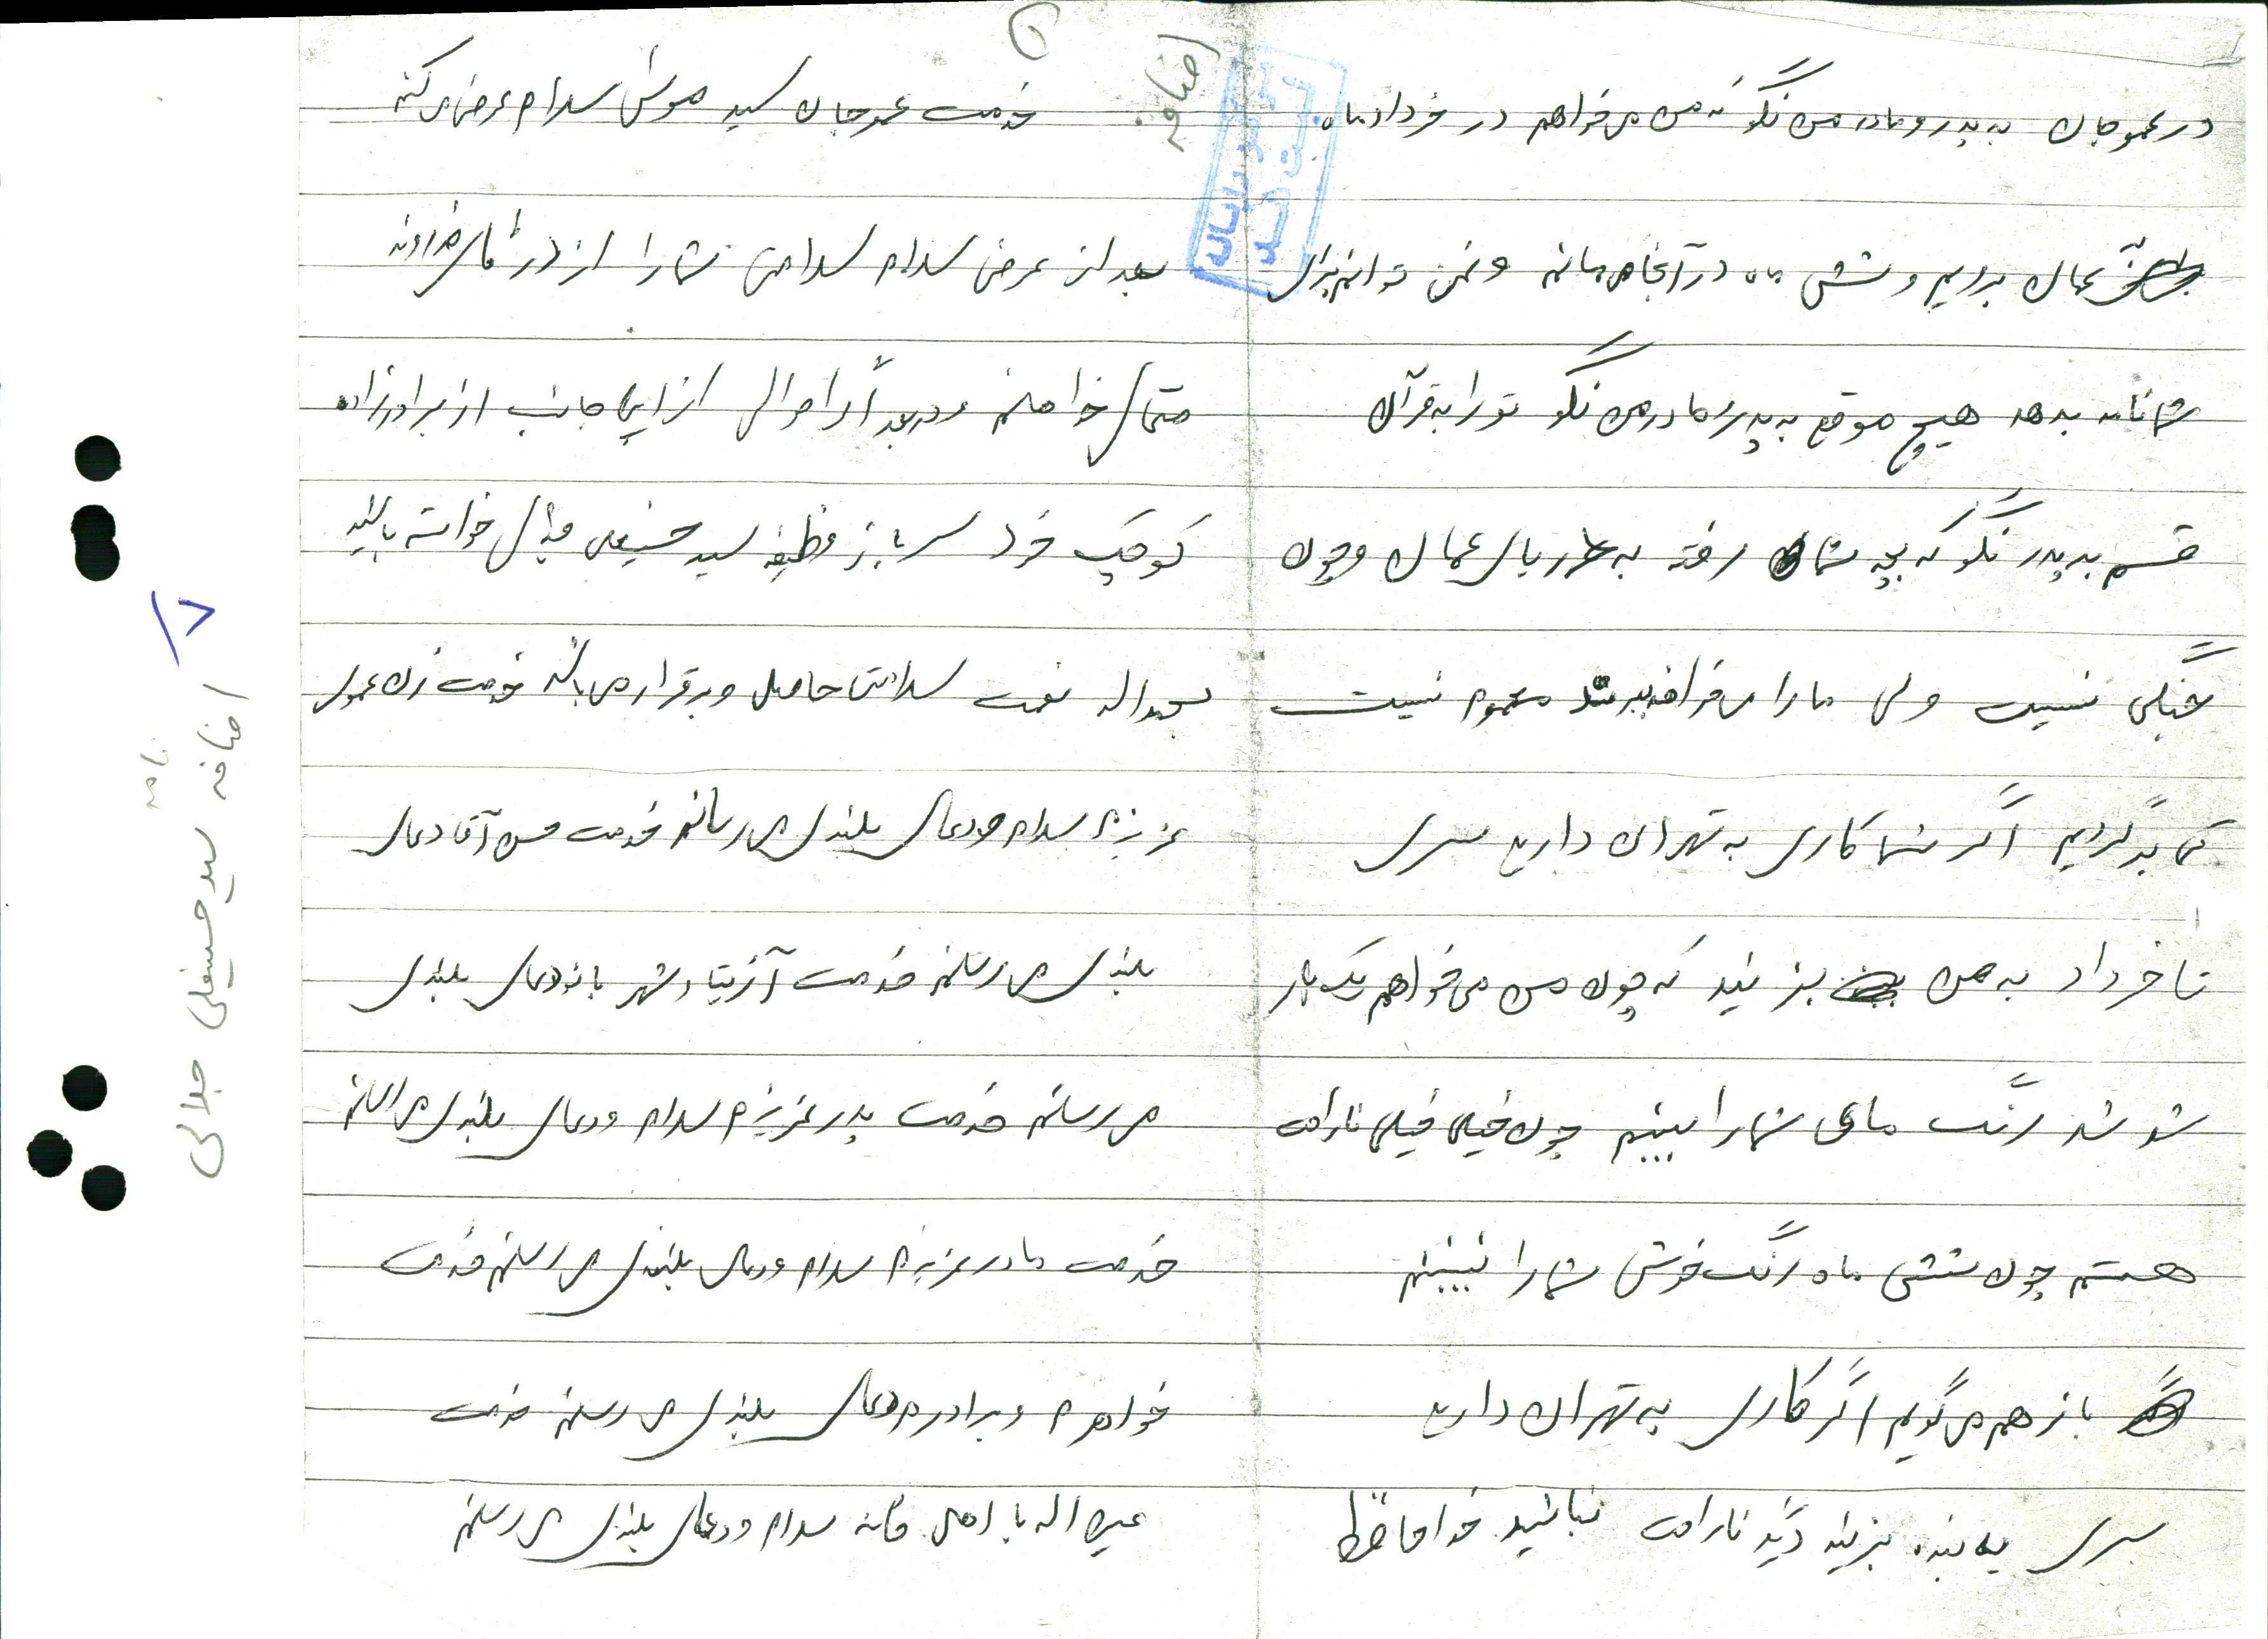 اضافه
خدمت عموجان سید موسی سلام عرض می کنم
بعد از عرض سلام سلامتی شما را از درگاه خداوند
متعال خواهانم و در بعد اگر احوالی از اینجانب از برادرزاده
کوچک خود سرباز وظیفه سید حسینعلی جلالی خواسته باشید
بحمداله نعمت سلامتی حاصل و برقرار می باشد خدمت زن عموی
عزیزم سلام و دعای بلندی می رسانم خدمت حسن آقا دعای
بلندی می رسانم خدمت آزیتا و شهر بانو دعای بلندی
می رسانم خدمت پدر عزیزم سلام و دعای بلندی می رسانم
خدمت مادر عزیزم سلام و دعای بلندی می رسانم خدمت
خواهرم و برادرم دعای بلندی می رسانم خدمت
اله با اهل خانه سلام و دعای بلندی می رسانم
در عموجان به پدر و مادر من نگو که من می خواهم در خرداد ماه
شمال برویم و شش ماه در آنجا می مانم و نمی توانم برای
شما نامه بدهد هیچ موقع به پدر و مادر من نگو تو را به قرآن
قسم به پدر نگو که بچه شما رفته به شمال و چون
جنگی نیست ولی ما را می خواهند ببرند معلوم نیست
کی برگردیم اگر شما کاری به تهران دارید سری
تا خرداد به من بزنید که چون من می خواهم یک بار
شد شد رنگ های شما را ببینم چون خیلی خیلی ناراحت
هستم چون شش ماه رنگ خوش شما را نبینم
باز هم می گویم اگر کاری به تهران دارید
سری به بنده بزنید دیگر ناراحت نباشید خداحافظ
اضافه نامه سید حسینعلی جلالی